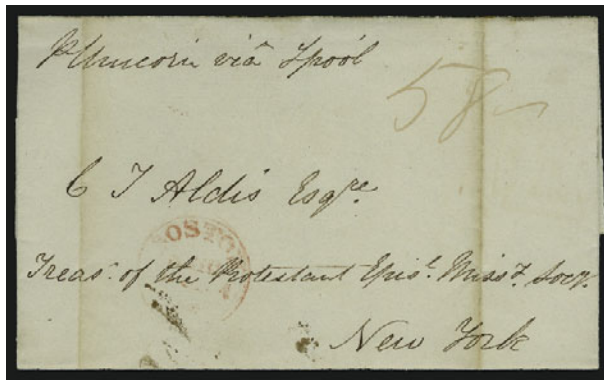 P Unicorn via Lpool
58
C T Aldis Esqre.
BOSTON
Treasr. of the Protestant Episl. Missy. Socy.
New York